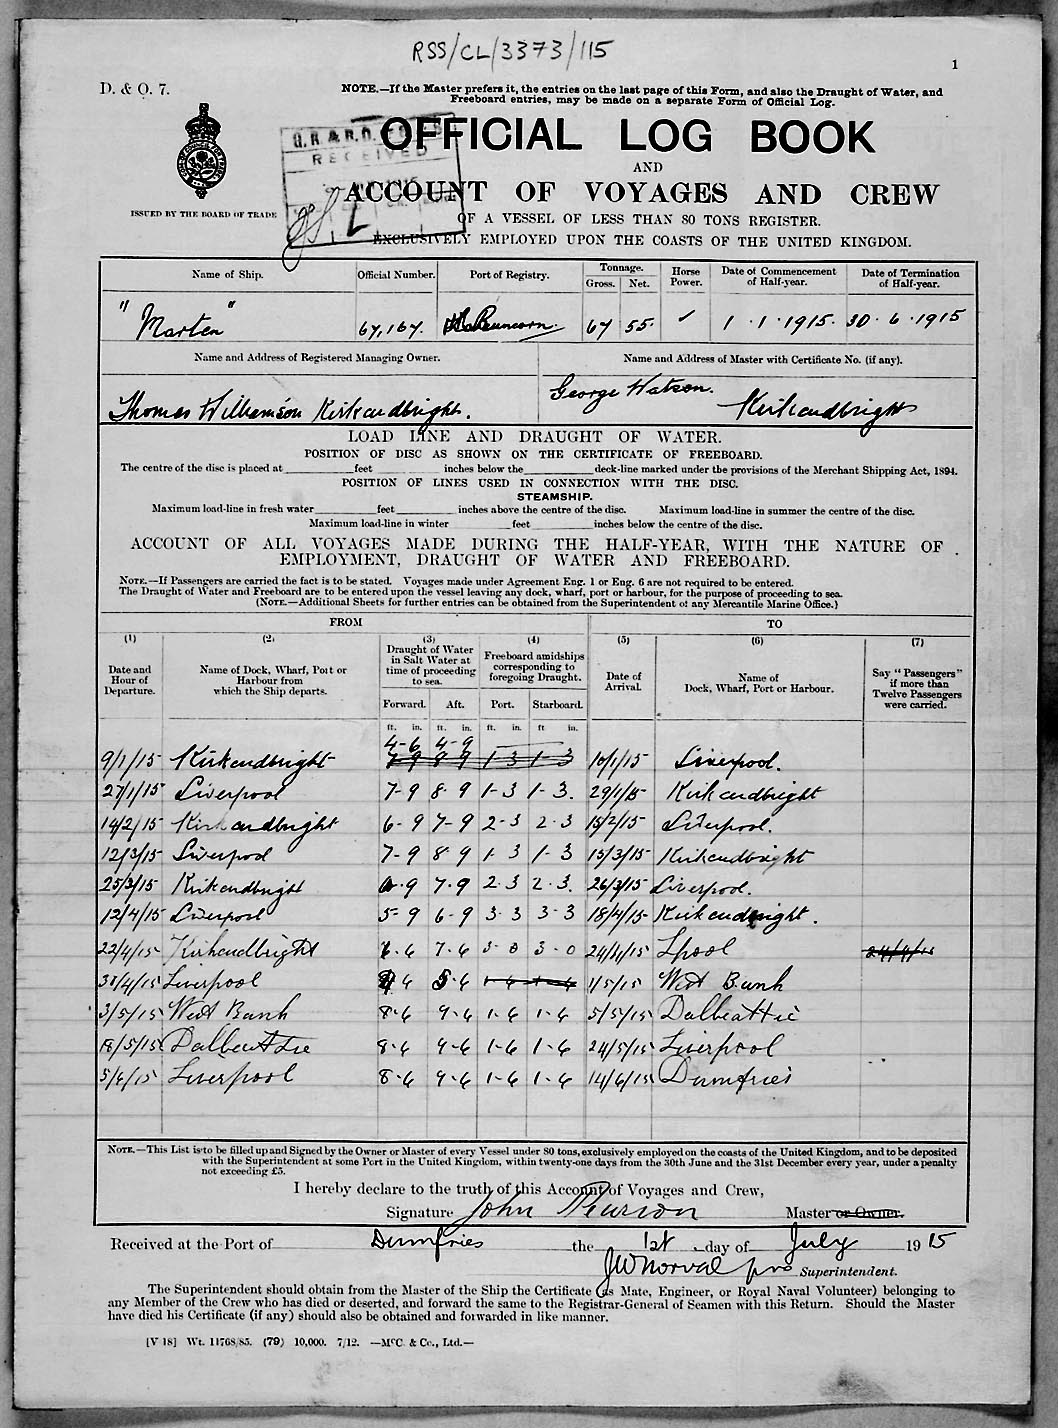 RSS/CL/3373/115
1
D. & O. 7.
NOTE.—If the Master prefers it, the entries on the last page of this Form, and also the Draught of Water, and
Freeboard entries, may be made on a separate Form of Official Log.
OFFICIAL LOG BOOK
RECEIVED
AND
ACCOUNT OF VOYAGES AND CREW
ISSUED BY THE BOARD OF TRADE
OF A VESSEL OF LESS THAN 80 TONS REGISTER.
EXCLUSIVELY EMPLOYED UPON THE COASTS OF THE UNITED KINGDOM.
Name of Ship. Official Number. Port of Registry. Tonnage. Gross. Net. Horse Power. Date of Commencement of Half-year. Date of Termination of Half-year.
"Marten" 67,167. Runcorn. 67 55. ✓ 1 . 1 . 1915. 30 . 6 . 1915
Name and Address of Registered Managing Owner. Name and Address of Master with Certificate No. (if any).
Thomas Williamson Kirkcudbright. George Watson. Kirkcudbright
LOAD LINE AND DRAUGHT OF WATER.
POSITION OF DISC AS SHOWN ON THE CERTIFICATE OF FREEBOARD.
The centre of the disc is placed at feet inches below the deck-line marked under the provisions of the Merchant Shipping Act, 1894.
POSITION OF LINES USED IN CONNECTION WITH THE DISC.
STEAMSHIP.
Maximum load-line in fresh water feet inches above the centre of the disc. Maximum load-line in summer the centre of the disc.
Maximum load-line in winter feet inches below the centre of the disc.
ACCOUNT OF ALL VOYAGES MADE DURING THE HALF-YEAR, WITH THE NATURE OF
EMPLOYMENT, DRAUGHT OF WATER AND FREEBOARD.
NOTE.—If Passengers are carried the fact is to be stated. Voyages made under Agreement Eng. 1 or Eng. 6 are not required to be entered.
The Draught of Water and Freeboard are to be entered upon the vessel leaving any dock, wharf, port or harbour, for the purpose of proceeding to sea.
(NOTE.—Additional Sheets for further entries can be obtained from the Superintendent of any Mercantile Marine Office.)
FROM TO
(1) (2) (3) (4) (5) (6) (7)
Date and Hour of Departure. Name of Dock, Wharf, Port or Harbour from which the Ship departs. Draught of Water in Salt Water at time of proceeding to sea. Freeboard amidships corresponding to foregoing Draught. Date of Arrival. Name of Dock, Wharf, Port or Harbour. Say "Passengers" if more than Twelve Passengers were carried.
Forward. Aft. Port. Starboard.
ft. in. ft. in. ft. in. ft in.
4-6 4-9
9/1/15 Kirkcudbright 7 9 8 9 1 3 1 3 10/1/15 Liverpool.
27/1/15 Liverpool 7-9 8-9 1-3 1-3. 29/1/15 Kirkcudbright
14/2/15 Kirkcudbright 6-9 7-9 2-3 2-3 15/2/15 Liverpool.
12/3/15 Liverpool 7-9 8-9 1-3 1-3 15/3/15 Kirkcudbright
25/3/15 Kirkcudbright 6-9 7-9 2-3 2-3. 26/3/15 Liverpool.
12/4/15 Liverpool 5-9 6-9 3-3 3-3 18/4/15 Kirkcudbright.
22/4/15 Kirkcudbright 6-6 7-6 3-0 3-0 24/4/15 Lpool 24/4/15
30/4/15 Liverpool 6 5-6 1-6 1-6 1/5/15 West Bank
3/5/15 West Bank 8-6 9-6 1-6 1-6 5/5/15 Dalbeattie
18/5/15 Dalbeattie 8-6 9-6 1-6 1-6 24/5/15 Liverpool
5/6/15 Liverpool 8-6 9-6 1-6 1-6 14/6/15 Dumfries
NOTE.—This List is to be filled up and Signed by the Owner or Master of every Vessel under 80 tons, exclusively employed on the coasts of the United Kingdom, and to be deposited
with the Superintendent at some Port in the United Kingdom, within twenty-one days from the 30th June and the 31st December every year, under a penalty
not exceeding £5.
I hereby declare to the truth of this Account of Voyages and Crew,
Signature John Pearson Master or Owner.
Received at the Port of Dumfries the 1st day of July 1915
JW Norval pro Superintendent.
The Superintendent should obtain from the Master of the Ship the Certificate (as Mate, Engineer, or Royal Naval Volunteer) belonging to
any Member of the Crew who has died or deserted, and forward the same to the Registrar-General of Seamen with this Return. Should the Master
have died his Certificate (if any) should also be obtained and forwarded in like manner.
[V 18] Wt. 11768/85. (79) 10,000. 7/12. —McC. & Co., Ltd.—